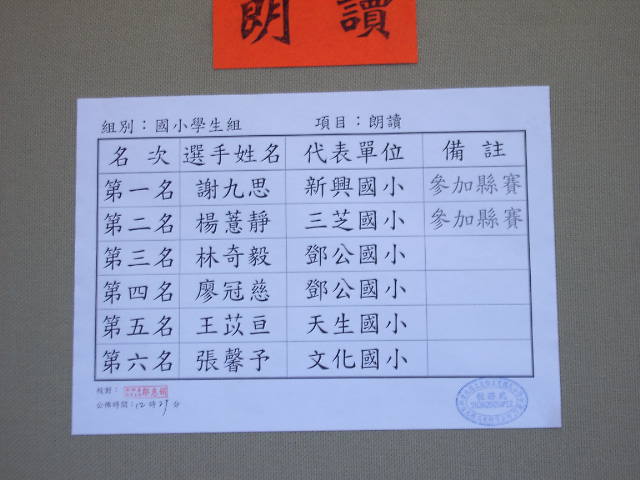 朗讀
組別：國小學生組 項目：朗讀
名次 選手姓名 代表單位 備註
第一名 謝九思 新興國小 參加縣賽
第二名 楊薏靜 三芝國小 參加縣賽
第三名 林奇毅 鄧公國小
第四名 廖冠慈 鄧公國小
第五名 王苡亘 天生國小
第六名 張馨予 文化國小
校對：
公佈時間：12時27分